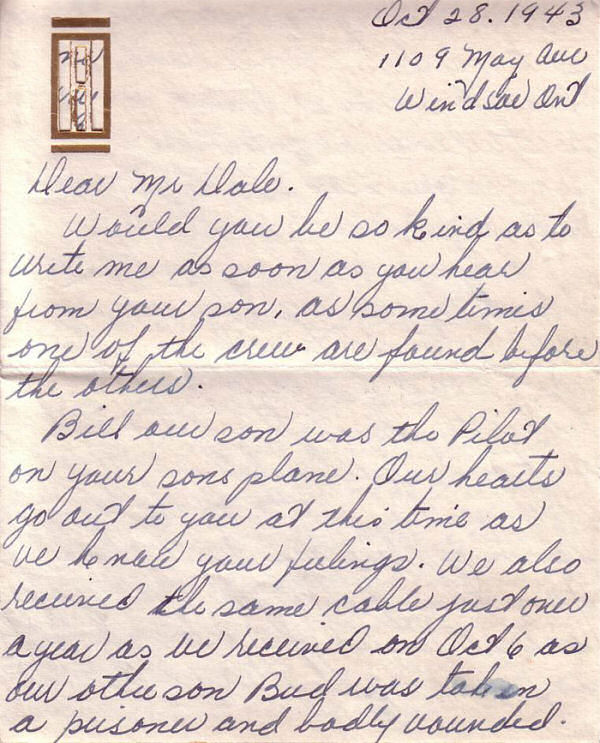 Oct 28. 1943
1109 May Ave
Windsor Ont
Dear Mr Dale.
Would you be so kind as to
write me as soon as you hear
from your son, as some times
one of the crew are found before
the others.
Bill our son was the Pilot
on your sons plane. Our hearts
go out to you at this time as
we know your feelings. We also
received the same cable just over
a year as we received on Oct 6 as
our other son Bud was taken
a prisoner and badly wounded.